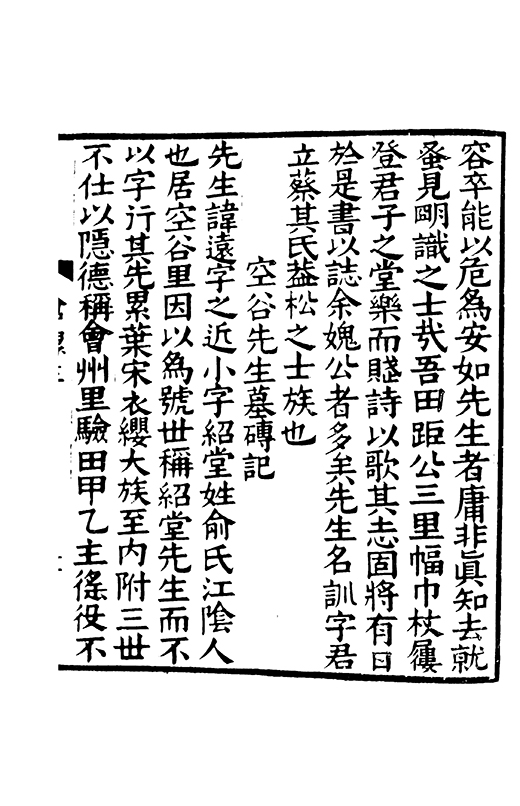 容卒能以危為安如先生者庸非眞知去就
蚤見明識之士㢤吾田距公三里幅巾杖屨
登君子之堂樂而賤詩以歌其志固將有日
於是書以誌余媿公者多矣先生名訓字君
立蔡其氏益松之士族也
空谷先生墓磚記
先生諱遠字之近小字紹堂姓俞氏江陰人
也居空谷里因以為號世稱紹堂先生而不
以字行其先累葉宋衣纓大族至內附三世
不仕以隱德稱會州里驗田甲乙主徭役不